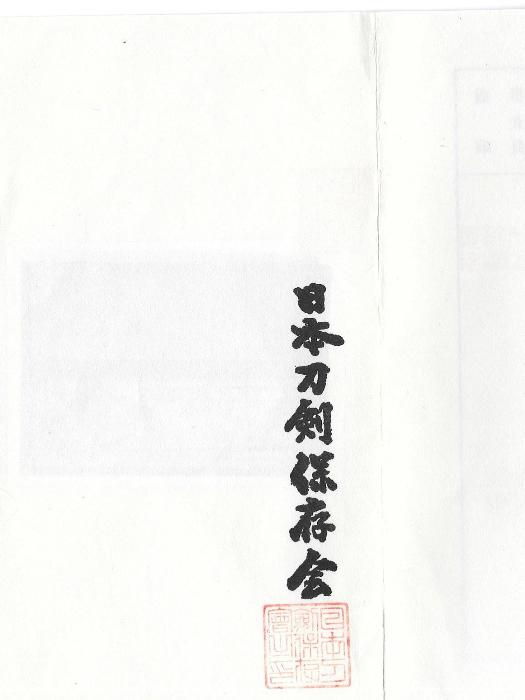 日本刀剣保存会